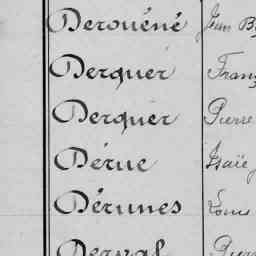 Derouéné Jean B
Derquer Franç
Derquer Pierre
Dérue Isaïe
Dérunes Louis
Derval Pierre